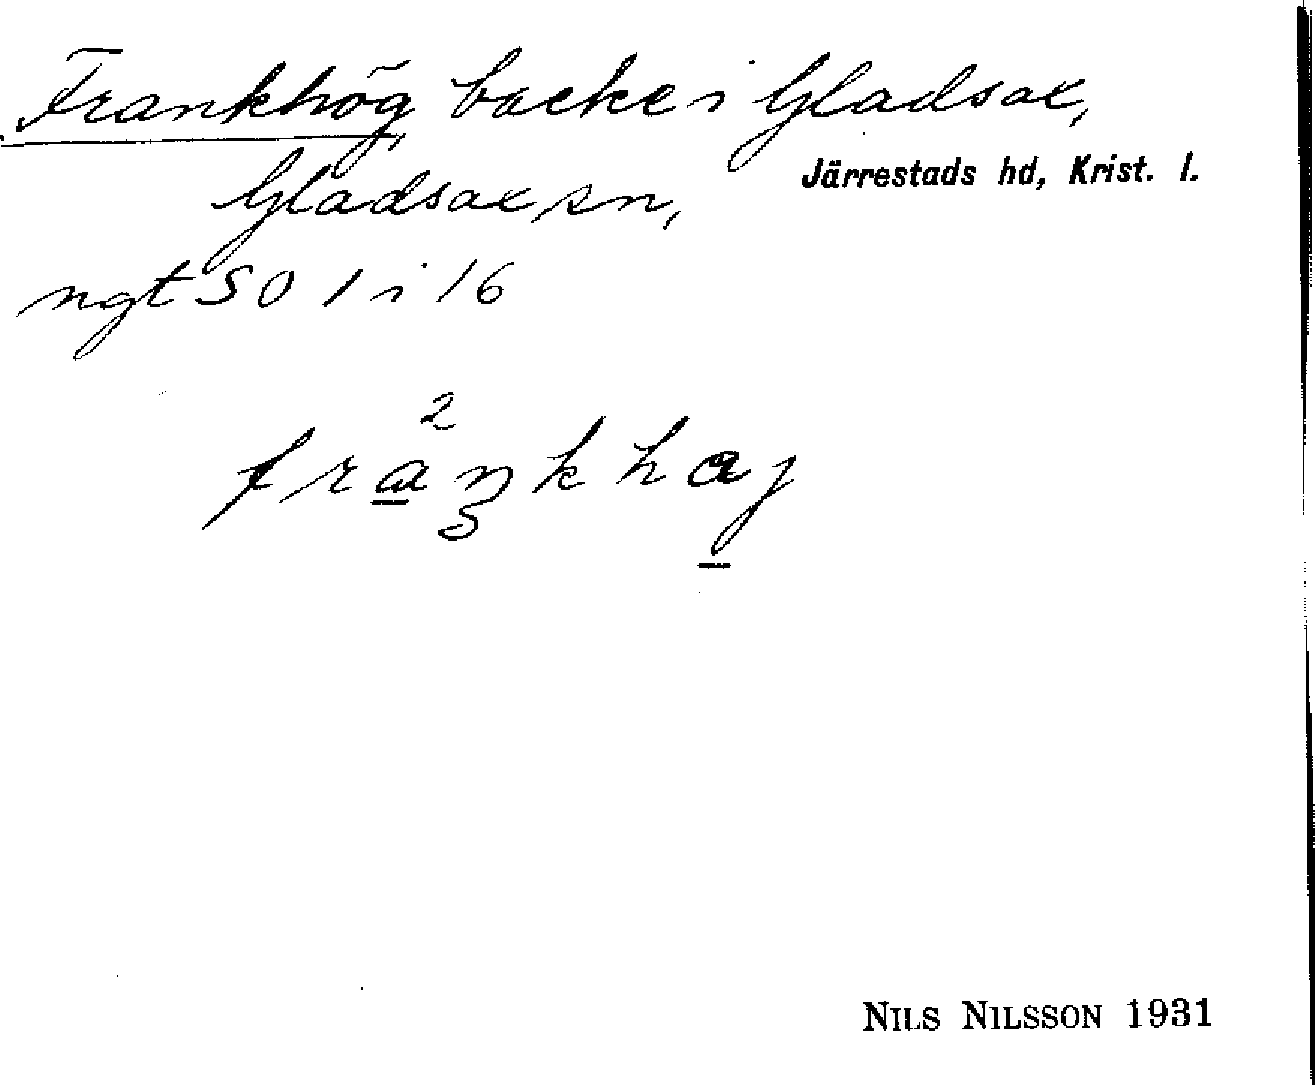 Frankhög, backe i Gladsax,
Gladsax sn, Järrestads hd, Krist. l.
ngt SO 1 i 16
2
frankhaj
NILS NILSSON 1931